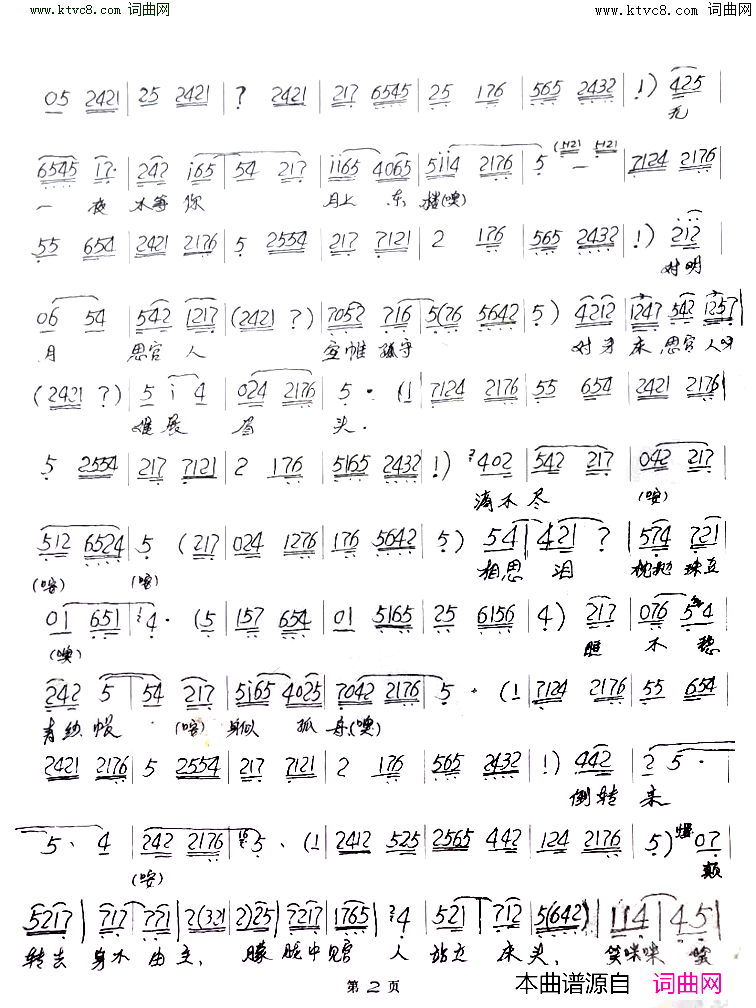 www.ktvc8.com 词曲网 www.ktvc8.com 词曲网
05 2421 | 25 2421 | ? 2421 | 217 6545 | 25 176 | 565 2432 | 1) 425
无
6545 17· | 242 i65 | 54 217 | ii65 4065 | 5ii4 2176 | 5 — | 7124 2176
一 夜 不等你 月上 东楼(噢)
55 654 | 2421 2176 | 5 2554 | 217 7121 | 2 176 | 565 2432 | 1) 212
对明
06 54 | 542 1217 | (2421 ?) | 7052 716 | 5(76 5642 | 5) 4212 | 1247 542 1257
月 思官 人 空帷 孤守 对牙床 思官人呀
(2421 ?) | 5 i 4 | 024 2176 | 5 · (1 | 7124 2176 | 55 654 | 2421 2176
难展 眉 头.
5 2554 | 217 7121 | 2 176 | 5165 2432 | 1) 402 | 542 217 | 042 217
滴不尽 (唉)
512 6524 | 5 (217 | 024 1276 | 176 5642 | 5) 54 | 421 ? | 574 721
(唉) (唉) 相思 泪 枕抛 珠豆
01 651 | 4 · (5 | 157 654 | 01 5165 | 25 6156 | 4) 217 | 076 5 4
(噢) 睡 不 稳
242 5 | 54 217 | 5i65 4025 | 7042 2176 | 5 · (1 | 7124 2176 | 55 654
青纱帐 (唉) 身似 孤 舟(噢)
2421 2176 | 5 2554 | 217 7121 | 2 176 | 565 2432 | 1) 442 | 2 5 ·
倒转 来
5 · 4 | 242 2176 | 5 · (1 | 2412 525 | 2565 442 | 124 2176 | 5) 07
(唉) 颠
5217 | 717 771 | 2(321 | 2)25 | 7217 | 1765 | 4 | 521 | 712 | 5(642) | 114 | 45
转去 身不 由主, 朦胧中见官 人 站立 床头, 笑咪咪 唉
第 2 页
本曲谱源自 词曲网